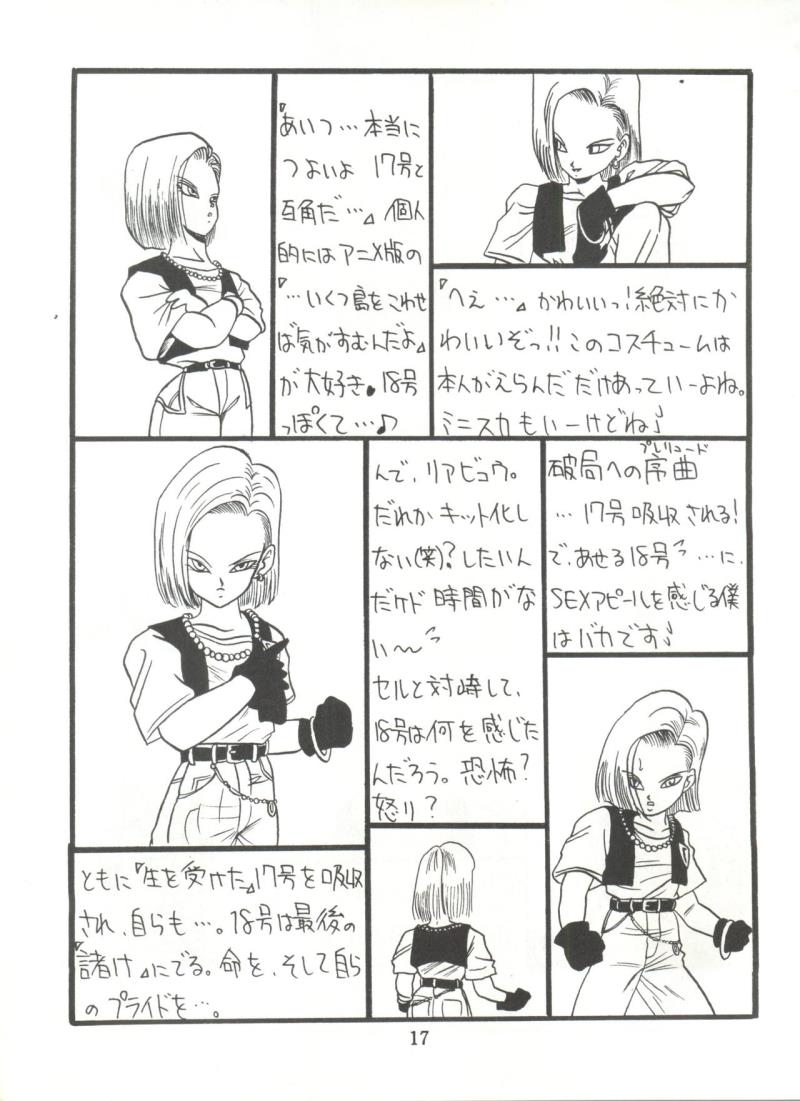 『あいつ…本当に
つよいよ 17号と
互角だ…』個人
的にはアニメ版の
『…いくつ島をこわせ
ば気がすむんだよ』
が大好き。18号
っぽくて…♪
『へぇ…』かわいいっ!絶対にか
わいいぞっ!!このコスチュームは
本人がえらんだだけあっていーよね。
ミニスカもいーけどね♪
んで、リアビュウ。
だれか キット化し
ない(笑)?したいん
だケド 時間がな
い〜
セルと対峙して、
18号は何を感じた
んだろう。恐怖?
怒り?
プレリュード
破局への序曲
…17号吸収される!
で、あせる18号…に、
SEXアピールを感じる僕
はバカです♪
ともに『生を受けた』17号を吸収
され、自らも…。18号は最後の
『諸け』にでる。命を、そして自ら
のプライドを…。
17